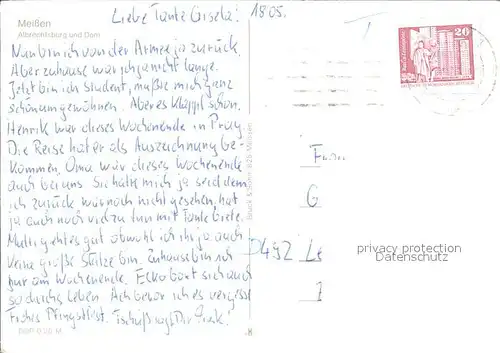 Meißen
Albrechtsburg und Dom
Liebe Tante Gisela!
18.05.
20
Nun bin ich von der Armee ja zurück.
Aber zuhause war ich ja nicht lange.
Jetzt bin ich Student, mußte mich ganz
schön umgewöhnen. Aber es klappt schon.
Henrik war dieses Wochenende in Prag.
Die Reise hat er als Auszeichnung be-
kommen. Oma war dieses Wochenende
auch bei uns. Sie hatte mich ja seit dem
ich zurück war noch nicht gesehen, hat
ja auch noch viel zu tun mit Tante Grete.
Mutti geht es gut obwohl ich ihr ja auch
keine große Stütze bin. Zuhause bin ich
nur am Wochenende. Ecko baut sich auch
so durchs Leben. Ach bevor ich es vergesse
Frohes Pfingstfest. Tschüß sagt Dir
G
7492 Le
privacy protection
Datenschutz